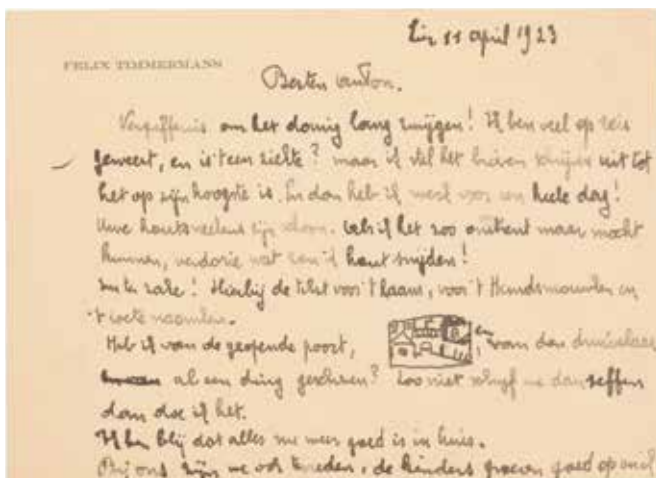 Lier 11 April 1923
FELIX TIMMERMANS
Besten Anton.
Vergeffenis om het domig lang zwijgen! Ik ben veel op reis
geweest, en is 't een ziekte? maar ik stel het brieven schrijven uit tot
het op zijn hoogste is. En dan heb ik werk voor een heele dag!
Uwe houtsneden zijn schoon. Als ik het zoo omtrent maar mocht
kunnen, verdorie wat zou ik hout snijden!
ter zake! Hierbij de tekst voor 't
't zoete naamken.
Heb ik van de geopende poort, en van den
al een ding geschreven? Zoo niet schrijf me dan seffens
dan doe ik het.
Ik ben blij dat alles nu weer goed is in huis.
Bij ons zijn we ook tevreden, de kinders groeien goed op